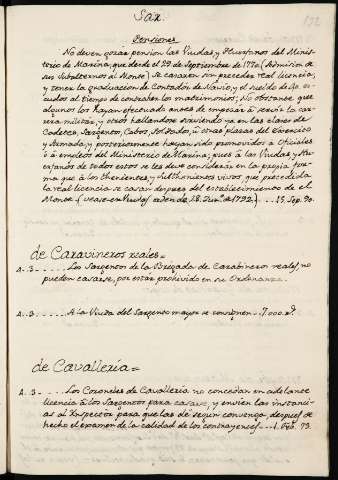 Sar.
132
Pensiones
No deven gozar pension las Viudas, y Huerfanos del Minis-
terio de Marina, que desde el 29 de Septiembre de 1770 (admision de
sus Subalternos al Monte) se casaren sin preceder real licencia,
y tener la graduacion de Contador de Navio, y el sueldo de 40 es-
cudos al tiempo de contraher los matrimonios; No obstante que
algunos los hayan efectuado antes de empezar à servir la car-
rera militar, y otros hallandose sirviendo ya en las clases de
Cadetes, Sargentos, Cabos, Soldados, ù otras plazas del Exercito
y Armada, y posteriormente hayan sido promovidos à Oficiales
ò à empleos del Ministerio de Marina; pues à las Viudas, y Hu-
erfanos de todos estos se les debe considerar en la propia for-
ma que à los Thenientes, y Subthenientes vivos, que precedida
la real licencia se casan despues del establecimiento de el
Monte. (vease en Viudas orden de 28. Jun.º de 1792.) ... 15. Sep. 90.
de Caravineros reales =
A. 3. ..... Los Sargentos de la Brigada de Carabineros reales, no
pueden casarse, por estar prohivido en su Ordenanza.
A. 3. ..... A la Viuda del Sargento mayor se consignen .. 7,000 r.s
de Cavalleria =
A. 3. ..... Los Coroneles de Cavalleria no concedan en adelante
licencia à los Sargentos para casarse, y envien las instanci-
as al Inspector para que las dè segun convenga despues de
hecho el examen de la calidad de los contrayentes .. 1. Feb. 73.